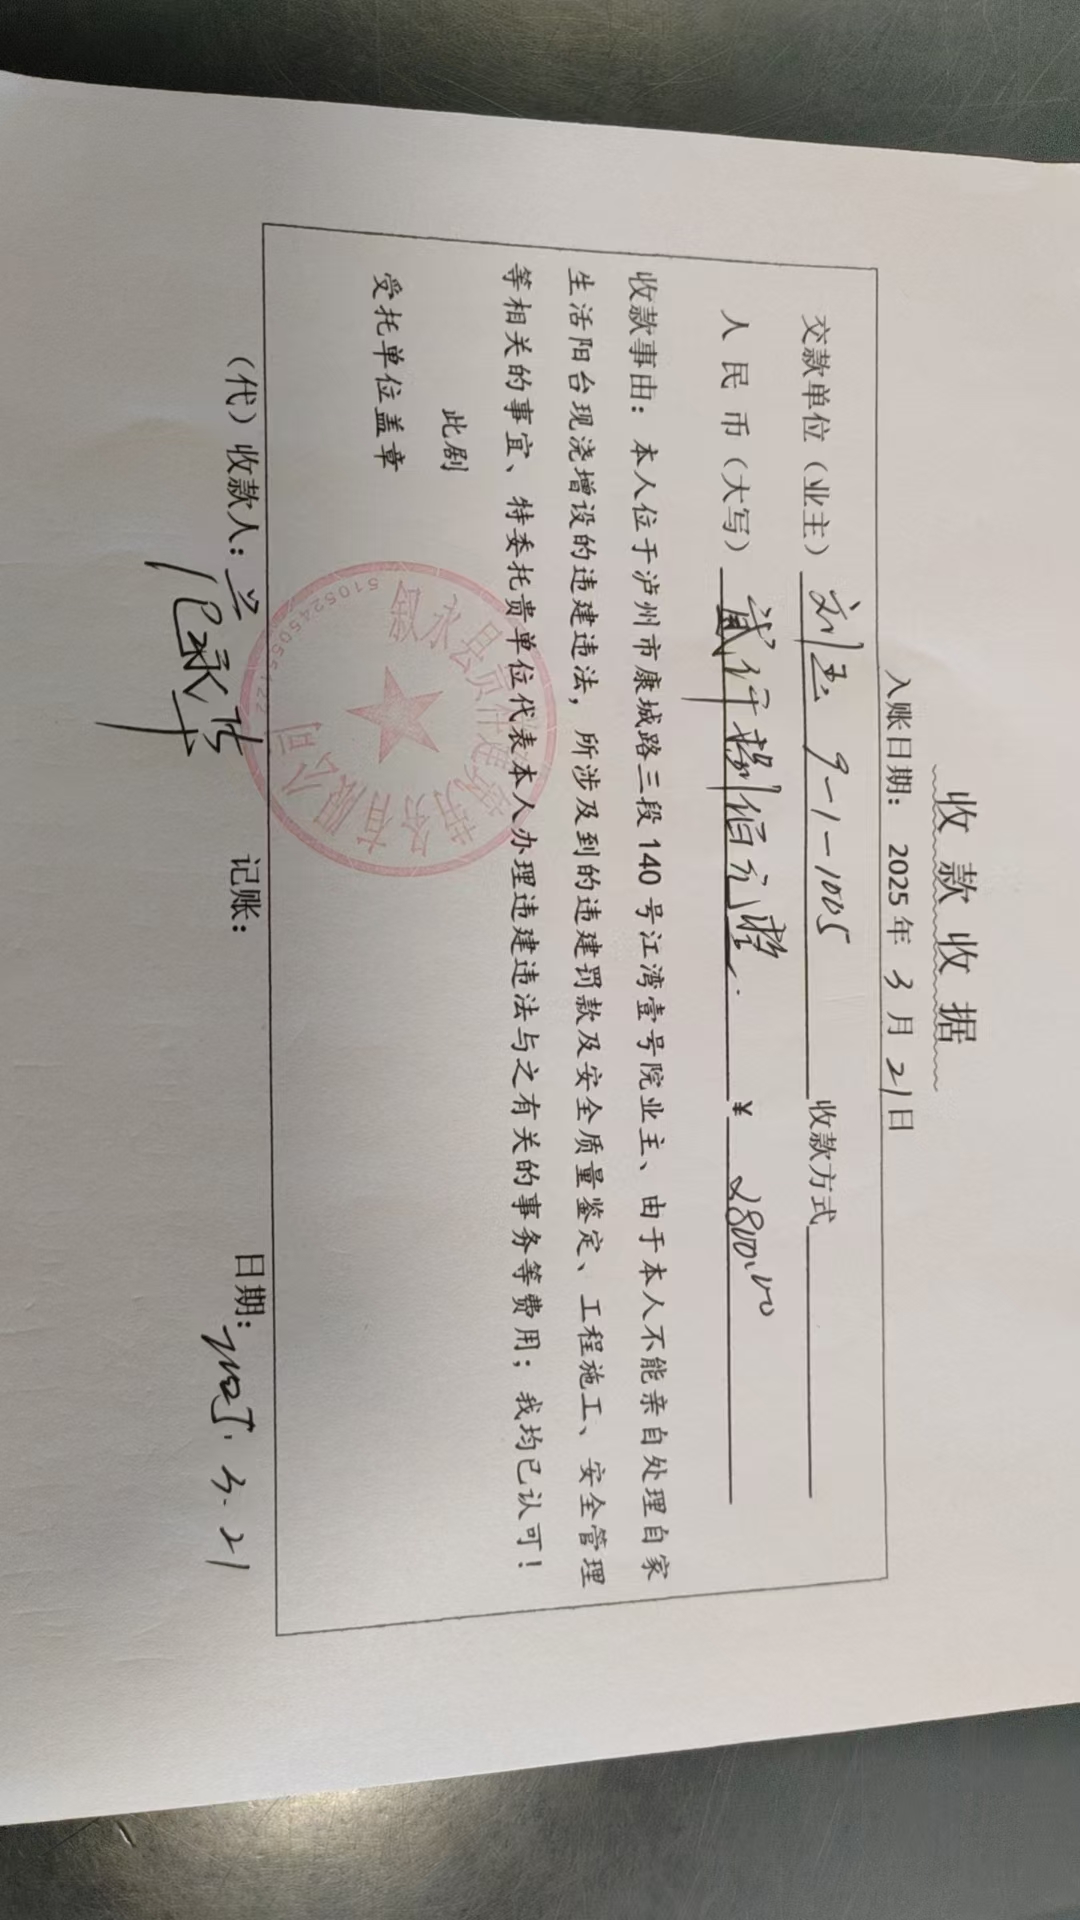 收款收据
入账日期：2025年 3月 21日
交款单位（业主） 刘 9-1-1005 收款方式
人民币（大写） 贰仟捌佰元整. ¥ 2800.00
收款事由：本人位于泸州市康城路三段140号江湾壹号院业主、由于本人不能亲自处理自家
生活阳台现浇增设的违建违法，所涉及到的违建罚款及安全质量鉴定、工程施工、安全管理
等相关的事宜、特委托贵单位代表本人办理违建违法与之有关的事务等费用；我均已认可！
此剧
受托单位盖章
叙永县 劳务有限公司
（代）收款人： 记账： 日期：2025.3.21